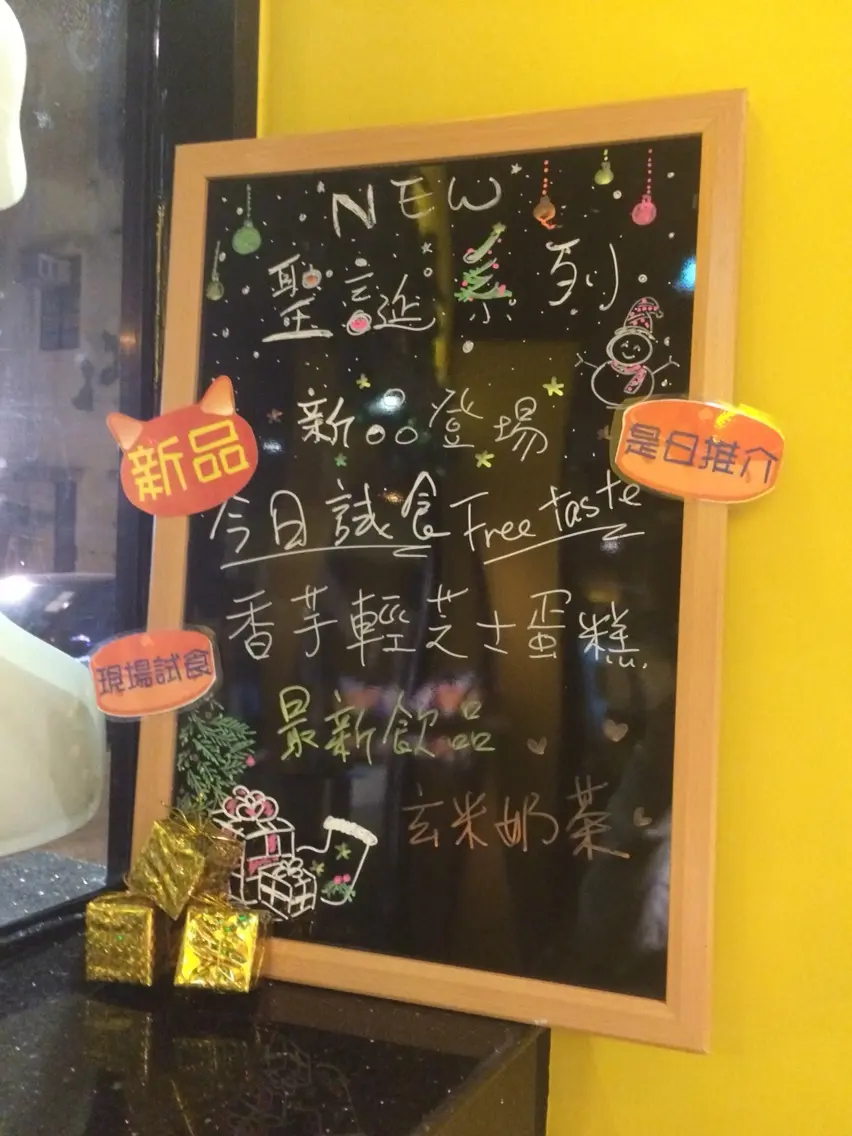 NEW
聖誕系列
新品登場
新品
是日推介
今日試食 Free taste
香芋輕芝士蛋糕
現場試食
最新飲品
玄米奶茶